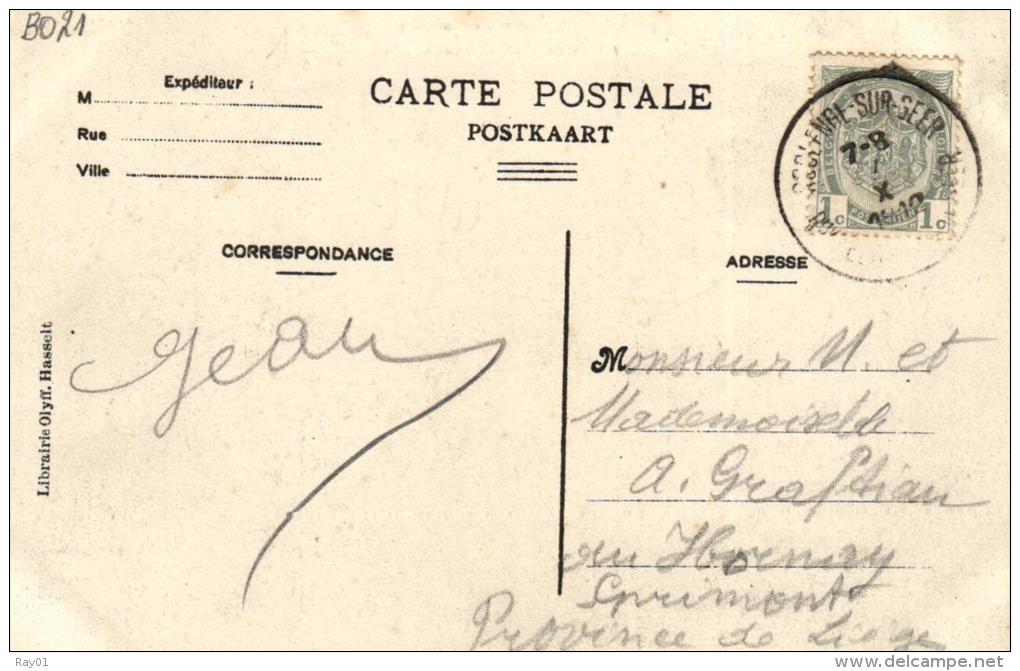 B021
Expéditeur :
M
Rue
Ville
CARTE POSTALE
POSTKAART
SUR-GEER
7-8
X
1c 1c
CORRESPONDANCE
ADRESSE
Librairie Olyff. Hasselt
Jean
Monsieur N. et
Mademoiselle
A. Graftiau
au Hornay
Sprimont
Province de Liège
Ray01
delcampe.net